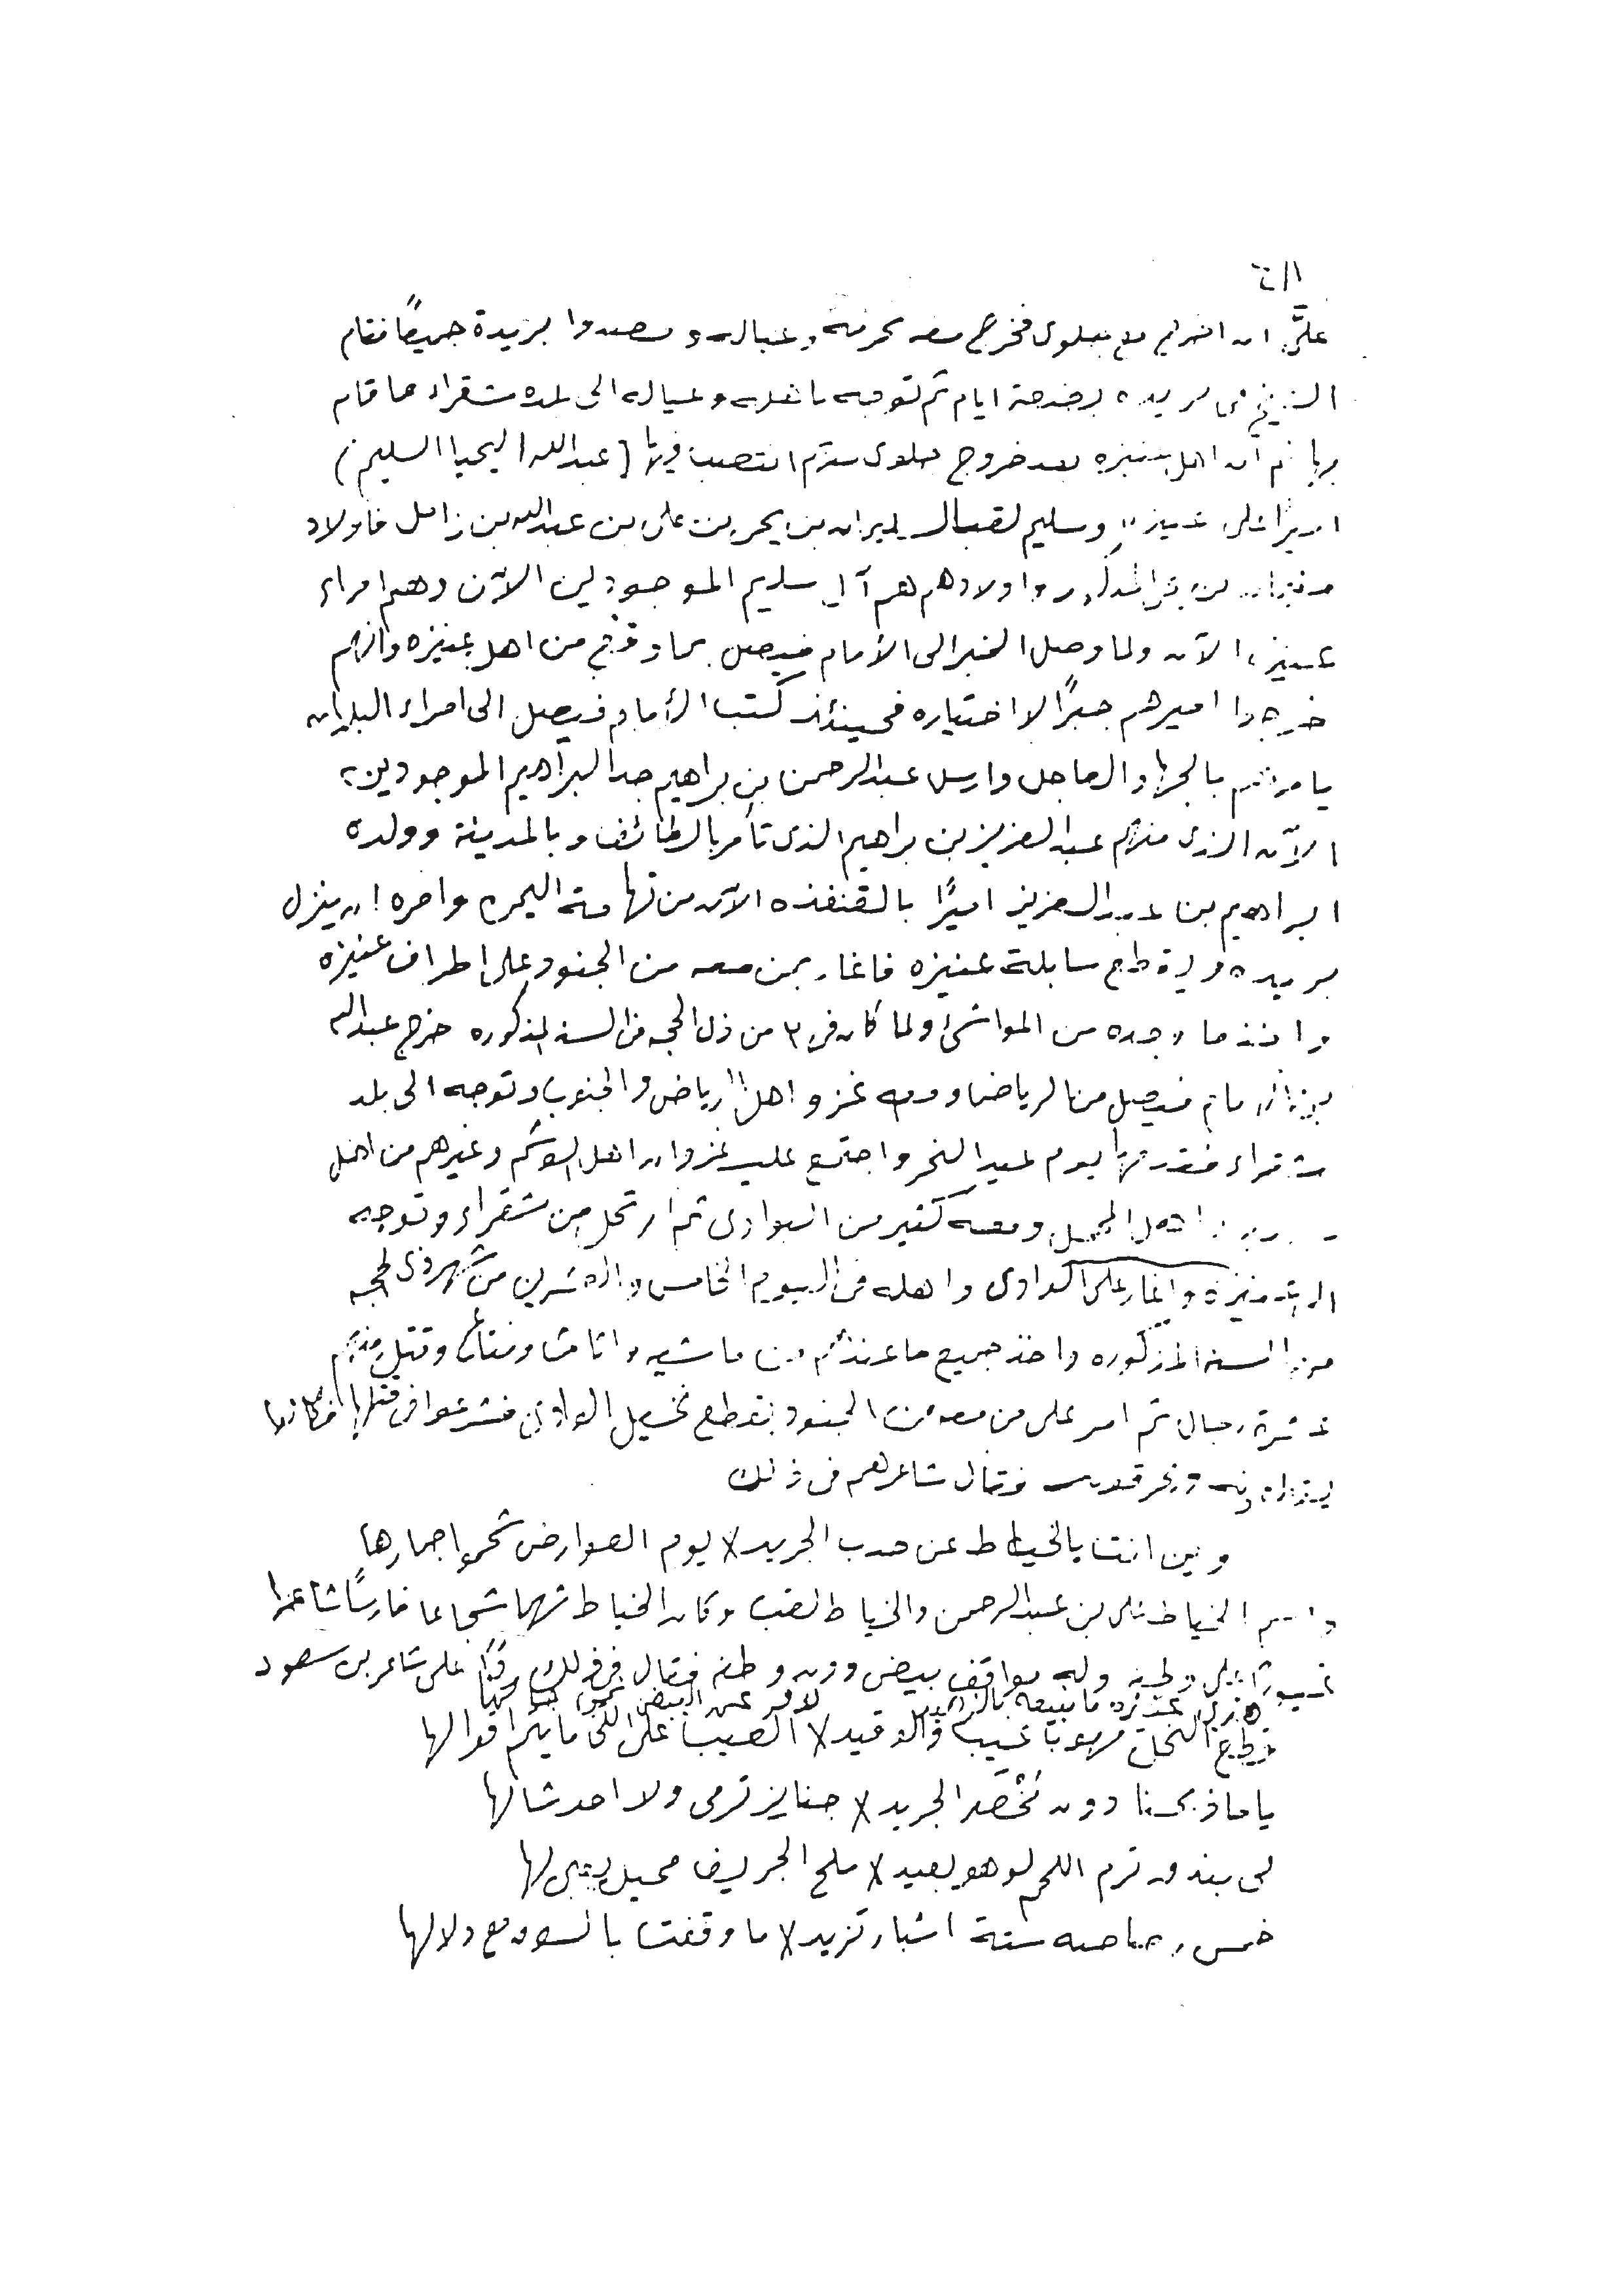 عليَّ ان اخرج مع جلوى فخرج معه بحرمه وعياله وقصدوا بريدة جميعًا فقام
الشيخ في بريده بضعة ايام ثم توجه باهله وعياله الى بلده شقراء فاقام
بها ثم ان اهل عنيزه بعد خروج جلوى منهم انتصب فيها (عبدالله اليحيا السليم)
اميرًا على عنيزه وسليم لقبال بن يحي بن علي بن عبدالله بن زامل فاولاد
واولادهم هم آل سليم الموجودين الآن وهم امراء
عنيزه الآن ولما وصل الخبر الى الأمام فيصل بما وقع من اهل عنيزه وانهم
خرجوا اميرهم جبرًا لا اختياره فحينئذ كتب الأمام فيصل الى امراء البلدان
يامرهم بالجهاد العاجل وارسل عبدالرحمن بن براهيم جد البراهيم الموجودين
الآن الذى منهم عبدالعزيز بن براهيم الذى تأمر بالطائف وبالمدينة وولده
ابراهيم بن عبدالعزيز اميرًا بالقنفذه الآن من تهامة اليمن وامره ان ينزل
بريده ويقطع سابلة عنيزه فاغار بمن معه من الجنود على اطراف عنيزه
واخذ ما وجده من المواشي ولما كان في ٣ من ذى الحجه من السنه المذكوره خرج عبدالله
بن الامام فيصل من الرياض ومعه غزو اهل الرياض والجنوب وتوجه الى بلد
شقراء فقدمها يوم عيد النحر واجتمع عليه غزوان اهل الوشم وغيرهم من اهل
اهل المحمل ومعه كثير من البوادى ثم ارتحل من شقراء وتوجه
الى عنيزه واغار على الوادى واهله في اليوم الخامس والعشرين من شهر ذى الحجه
من السنه المذكوره واخذ جميع ما عندهم من ماشيه واثاث ومتاع وقتل منهم
عشرة رجال ثم امر على من معه من الجنود بقطع نخيل الوادي فشرعوا في قتلها فكانوا
ويحرقونه فقال شاعرهم في ذلك
وين انت يالخياط عن حدب الجريد × يوم العوارض شحموا جمارها
واسم الخياط علي بن عبدالرحمن والخياط لقب وكان الخياط شهما شجاعا فارسًا شاعرا
غيورًا على وطنه وله مواقف بيض دون وطنه فقال في ذلك ردًّا على شاعر بن سعود
منزل عنيزه ما نبيعه بالزهيد لا عن البيض
قطاع النخل مهوب عيب والوقيد × العيب على اللى ما يتم اقوالها
ياما ذبحنا دون مخضر الجريد × جنايز ترمى ولا احد شالها
لى بندق ترم اللحم لو هو بعيد × ملح الجريف محيل يعبى لها
خمس رصاصه ستة اشبار تزيد × ما وقفت بالسوق مع دلالها